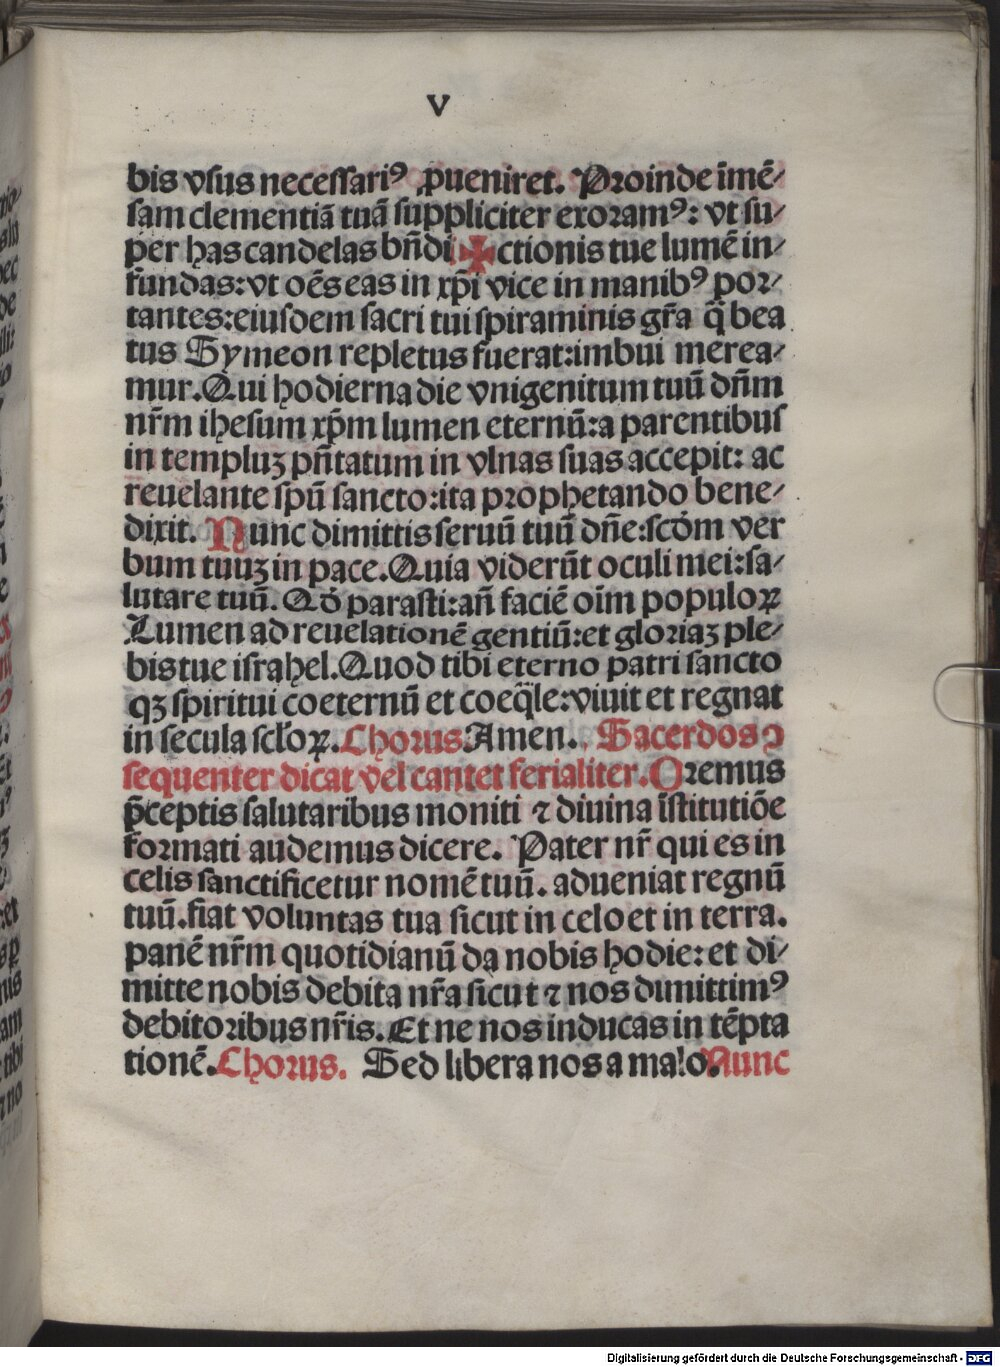 V
bis vsus necessariꝰ ꝓueniret. Proinde īmē⸗
sam clementiā tuā suppliciter exoramꝰ: vt su⸗
per has candelas bn̄di ✠ ctionis tue lumē in⸗
fundas: vt oēs eas in xp̄i vice in manibꝰ por⸗
tantes: eiusdem sacri tui spiraminis gr̄a q̄ bea
tus Symeon repletus fuerat: imbui merea⸗
mur. Qui hodierna die vnigenitum tuū dn̄m
nr̄m ihesum xp̄m lumen eternū: a parentibus
in templuꝫ pn̄tatum in vlnas suas accepit: ac
reuelante spū sancto: ita prophetando bene⸗
dixit. Nunc dimittis seruū tuū dn̄e: scd̓m ver
bum tuuꝫ in pace. Quia viderūt oculi mei: sa⸗
lutare tuū. Qd̓ parasti: an̄ faciē oīm populoꝝ
Lumen ad reuelationē gentiū: et gloriaꝫ ple⸗
bis tue israhel. Quod tibi eterno patri sancto
qꝫ spiritui coeternū et coeq̄le: viuit et regnat
in secula scl̓oꝝ. Chorus. Amen. Sacerdos ↄ
sequenter dicat vel cantet ferialiter. Oremus
p̄ceptis salutaribus moniti ⁊ diuina īstitutiōe
formati audemus dicere. Pater nr̄ qui es in
celis sanctificetur nomē tuū. adueniat regnū
tuū. fiat voluntas tua sicut in celo et in terra.
panē nr̄m quotidianū da nobis hodie: et di⸗
mitte nobis debita nr̄a sicut ⁊ nos dimittimꝰ
debitoribus nr̄is. Et ne nos inducas in tēpta
tionē. Chorus. Sed libera nos a malo. Nunc
Digitalisierung gefördert durch die Deutsche Forschungsgemeinschaft - DFG